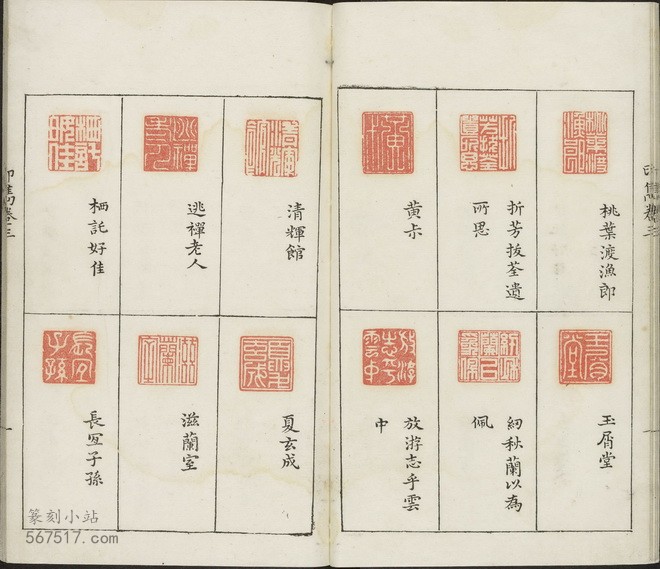 桃葉渡漁郎
折芳拔荃遺
所思
黄尗
玉屑堂
紉秋蘭以為
佩
放游志乎雲
中
清輝館
逃禪老人
栖託好佳
夏玄成
滋蘭室
長宜子孫
印雋卷三
印雋卷三
篆刻小站
567517.com